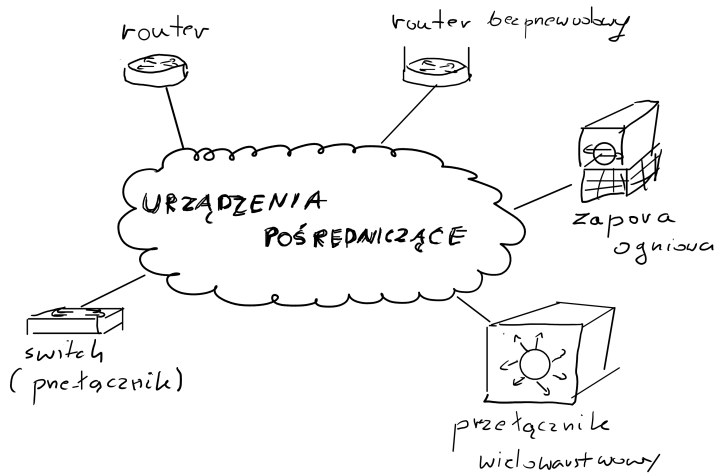 router
router bezprzewodowy
URZĄDZENIA
POŚREDNICZĄCE
zapora
ogniowa
switch
(przełącznik)
przełącznik
wielowarstwowy